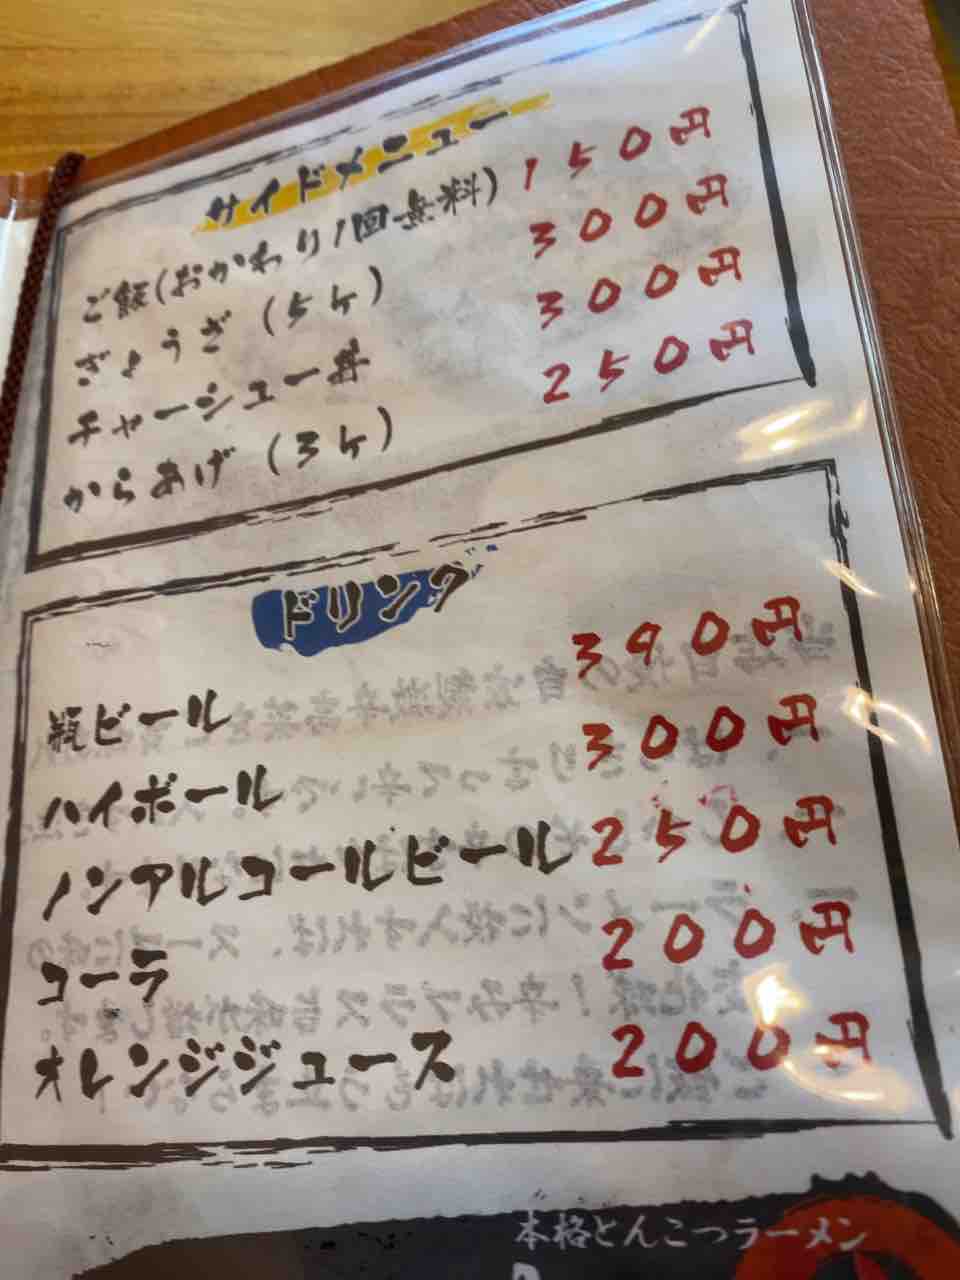 サイドメニュー
ご飯(おかわり1回無料) 150円
ぎょうざ (5ヶ) 300円
チャーシュー丼 300円
からあげ (3ヶ) 250円
ドリンク
瓶ビール 390円
ハイボール 300円
ノンアルコールビール 250円
コーラ 200円
オレンジジュース 200円
本格とんこつラーメン